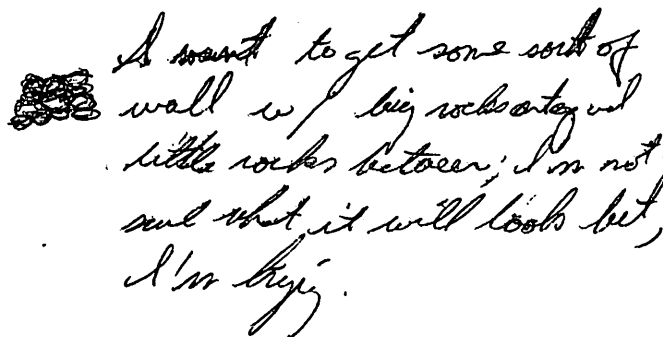 I want to get some sort of
wall w/ big rocks on top and
little rocks between; I'm not
sure what it will look but,
I'm trying.